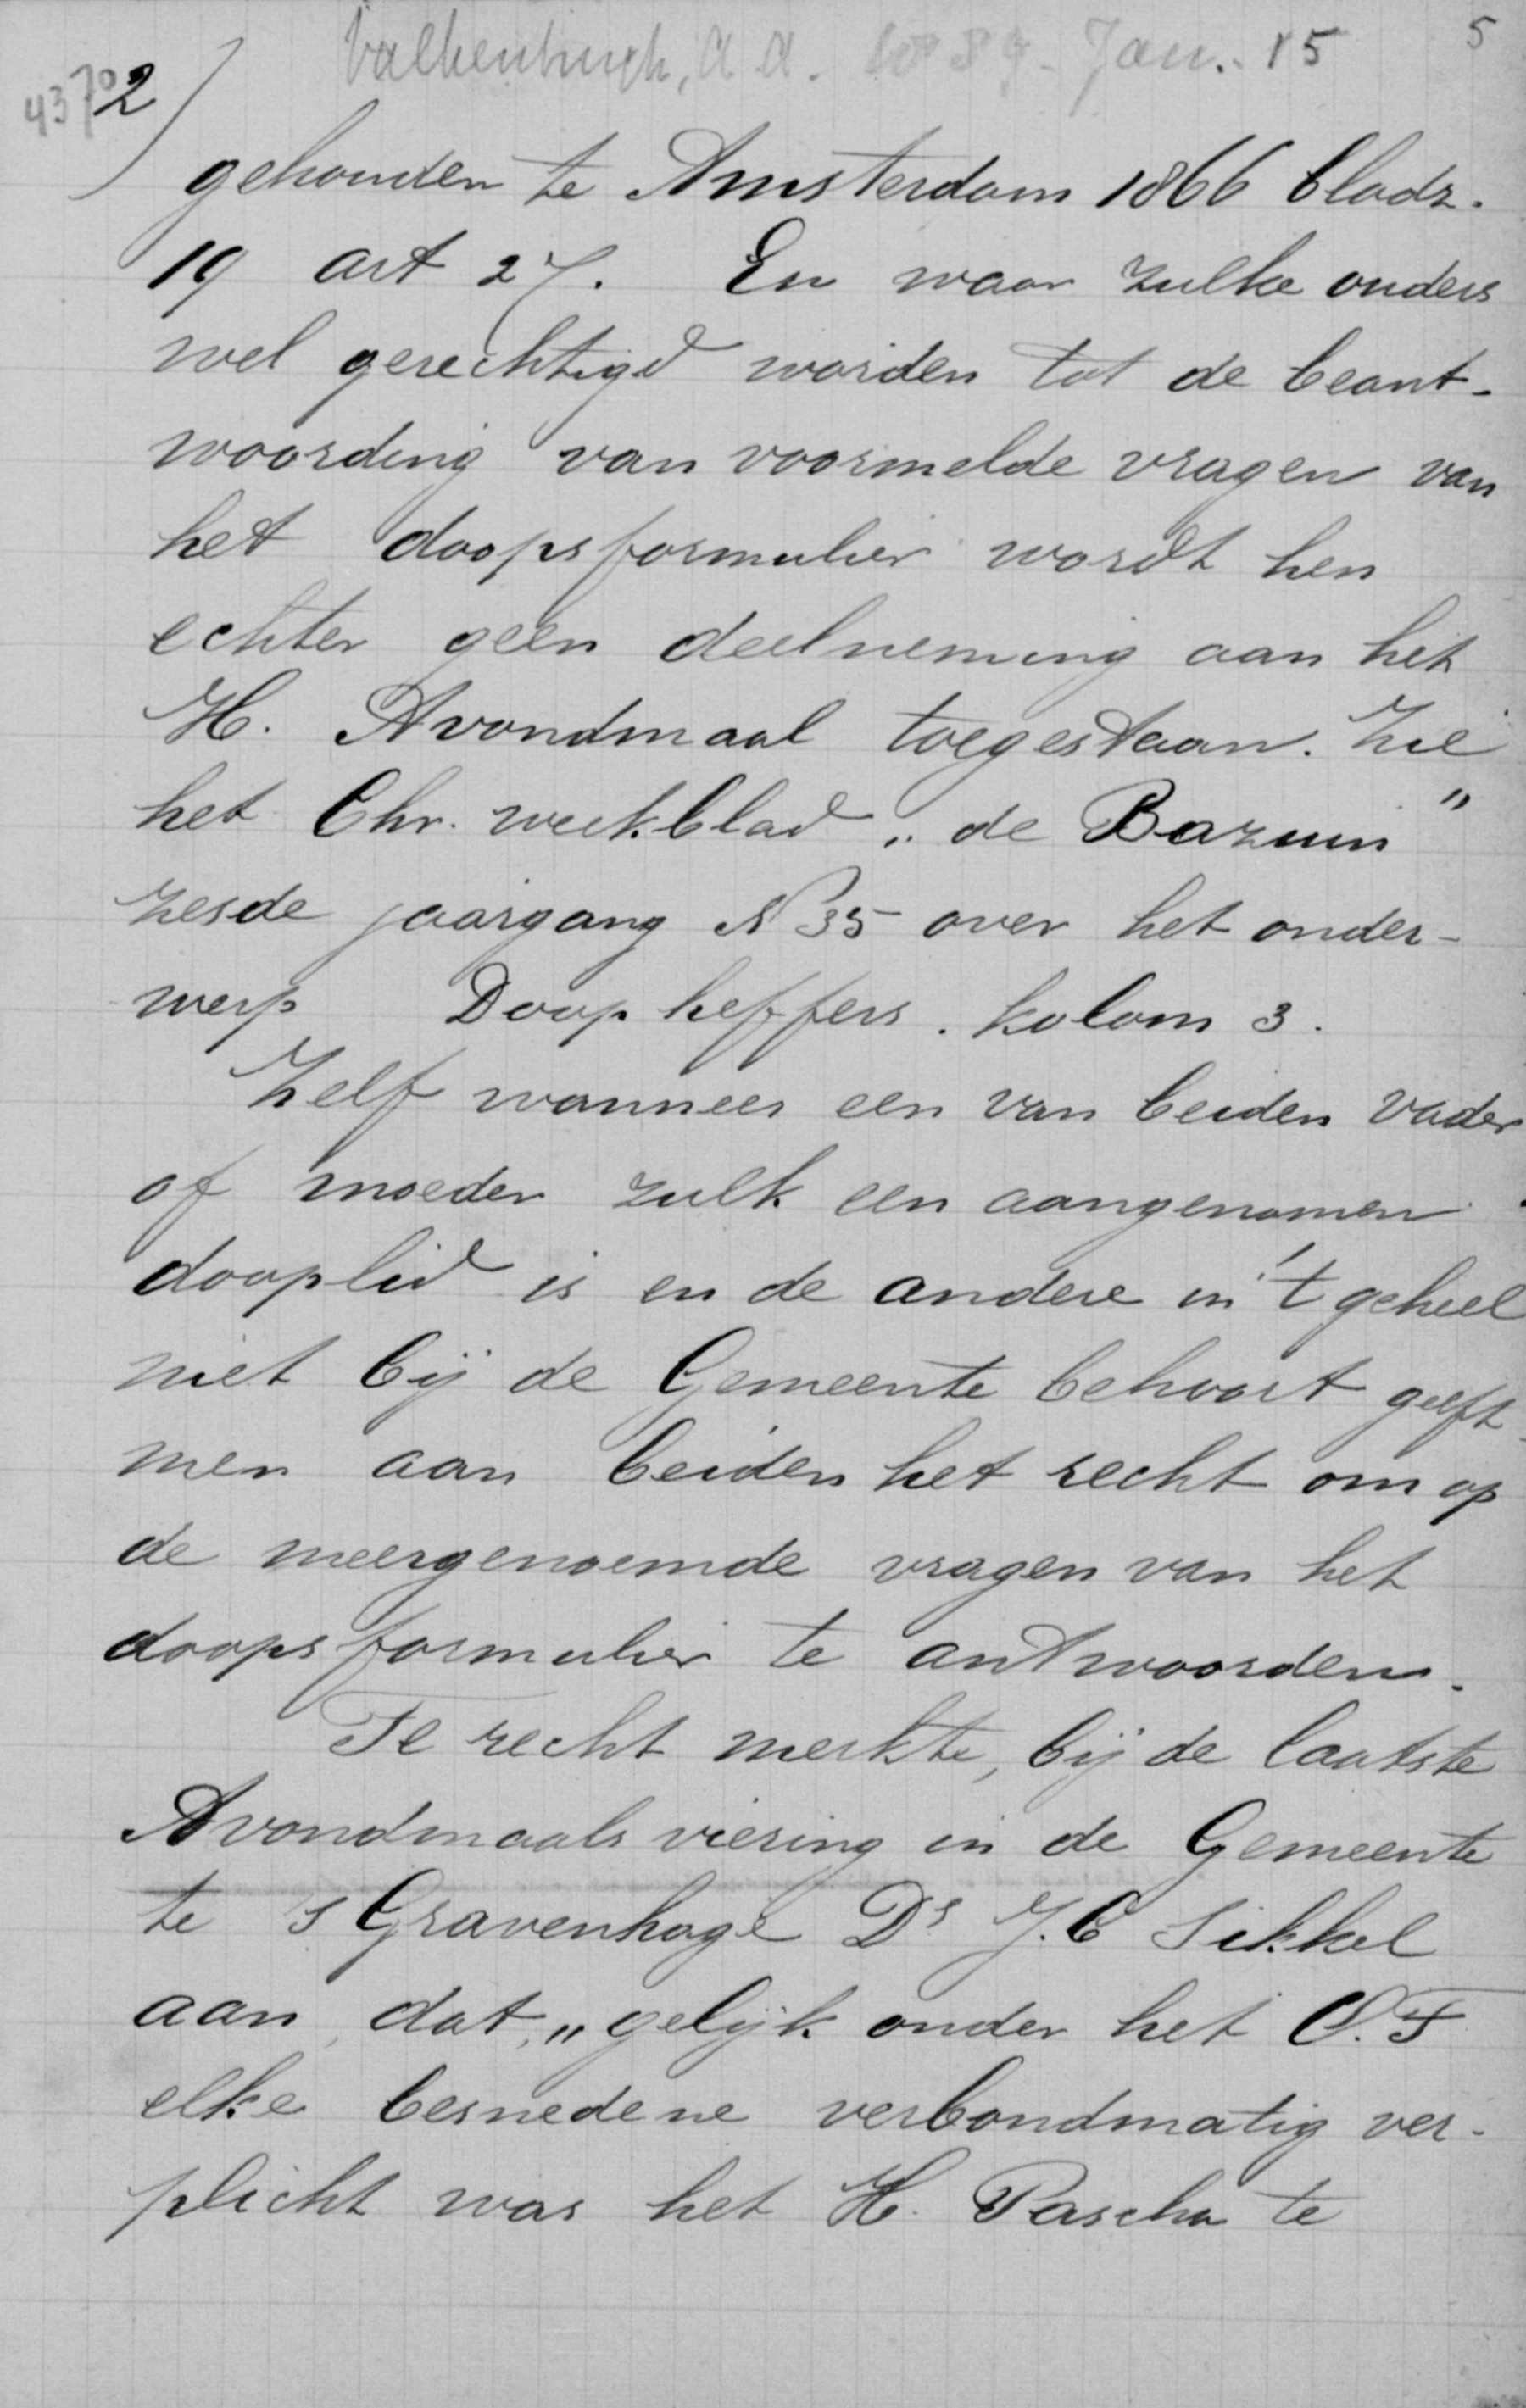 Valkenburgh, A. A. 1889 - Jan. 15 5
4370 2)
gehouden te Amsterdam 1866 bladz.
19 art 27. En waar zulke ouders
wel gerechtigd worden tot de beant-
woording van voormelde vragen van
het doopsformulier wordt hen
echter geen deelneming aan het
H. Avondmaal toegestaan. Zie
het Chr. weekblad „ de Bazuin "
zesde jaargang N 35 over het onder-
werp Doop heffers. kolom 3.
Zelf wanneer een van beiden vader
of moeder zulk een aangenomen
dooplid is en de andere in 't geheel
niet bij de Gemeente behoort geeft
men aan beiden het recht om op
de meergenoemde vragen van het
doopsformulier te antwoorden.
Te recht merkte, bij de laatste
Avondmaals viering in de Gemeente
te s Gravenhage Ds J. C Sikkel
aan, dat, „ gelijk onder het O. T
elke besnedene verbondmatig ver-
plicht was het H. Pascha te